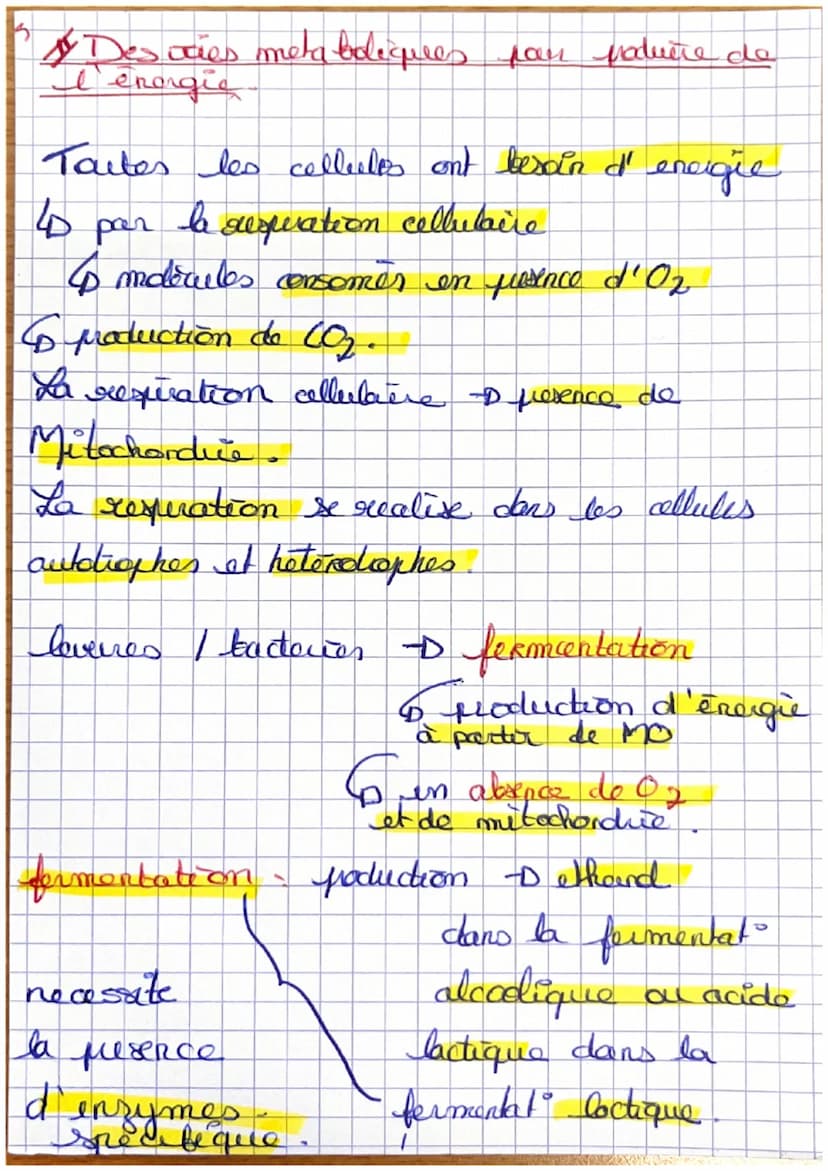 Des voies metaboliques pour produire de
l'énergie.
Toutes les cellules ont besoin d'energie
↳ par la respiration cellulaire
↳ molécules consomés en présence d'O2
↳ production de CO2.
La respiration cellulaire → presence de
Mitochondrie.
La respiration se realise dans les cellules
autotrophes et hétérotrophes.
levures / bactéries → fermentation
↳ production d'énergie
à partir de MO
↳ en absence de O2
et de mitochondrie.
fermentation : production → ethanol
dans la fermentat°
alcoolique ou acide
lactique dans la
fermentat° lactique.
necessite
la presence
d'enzymes
spécifique.